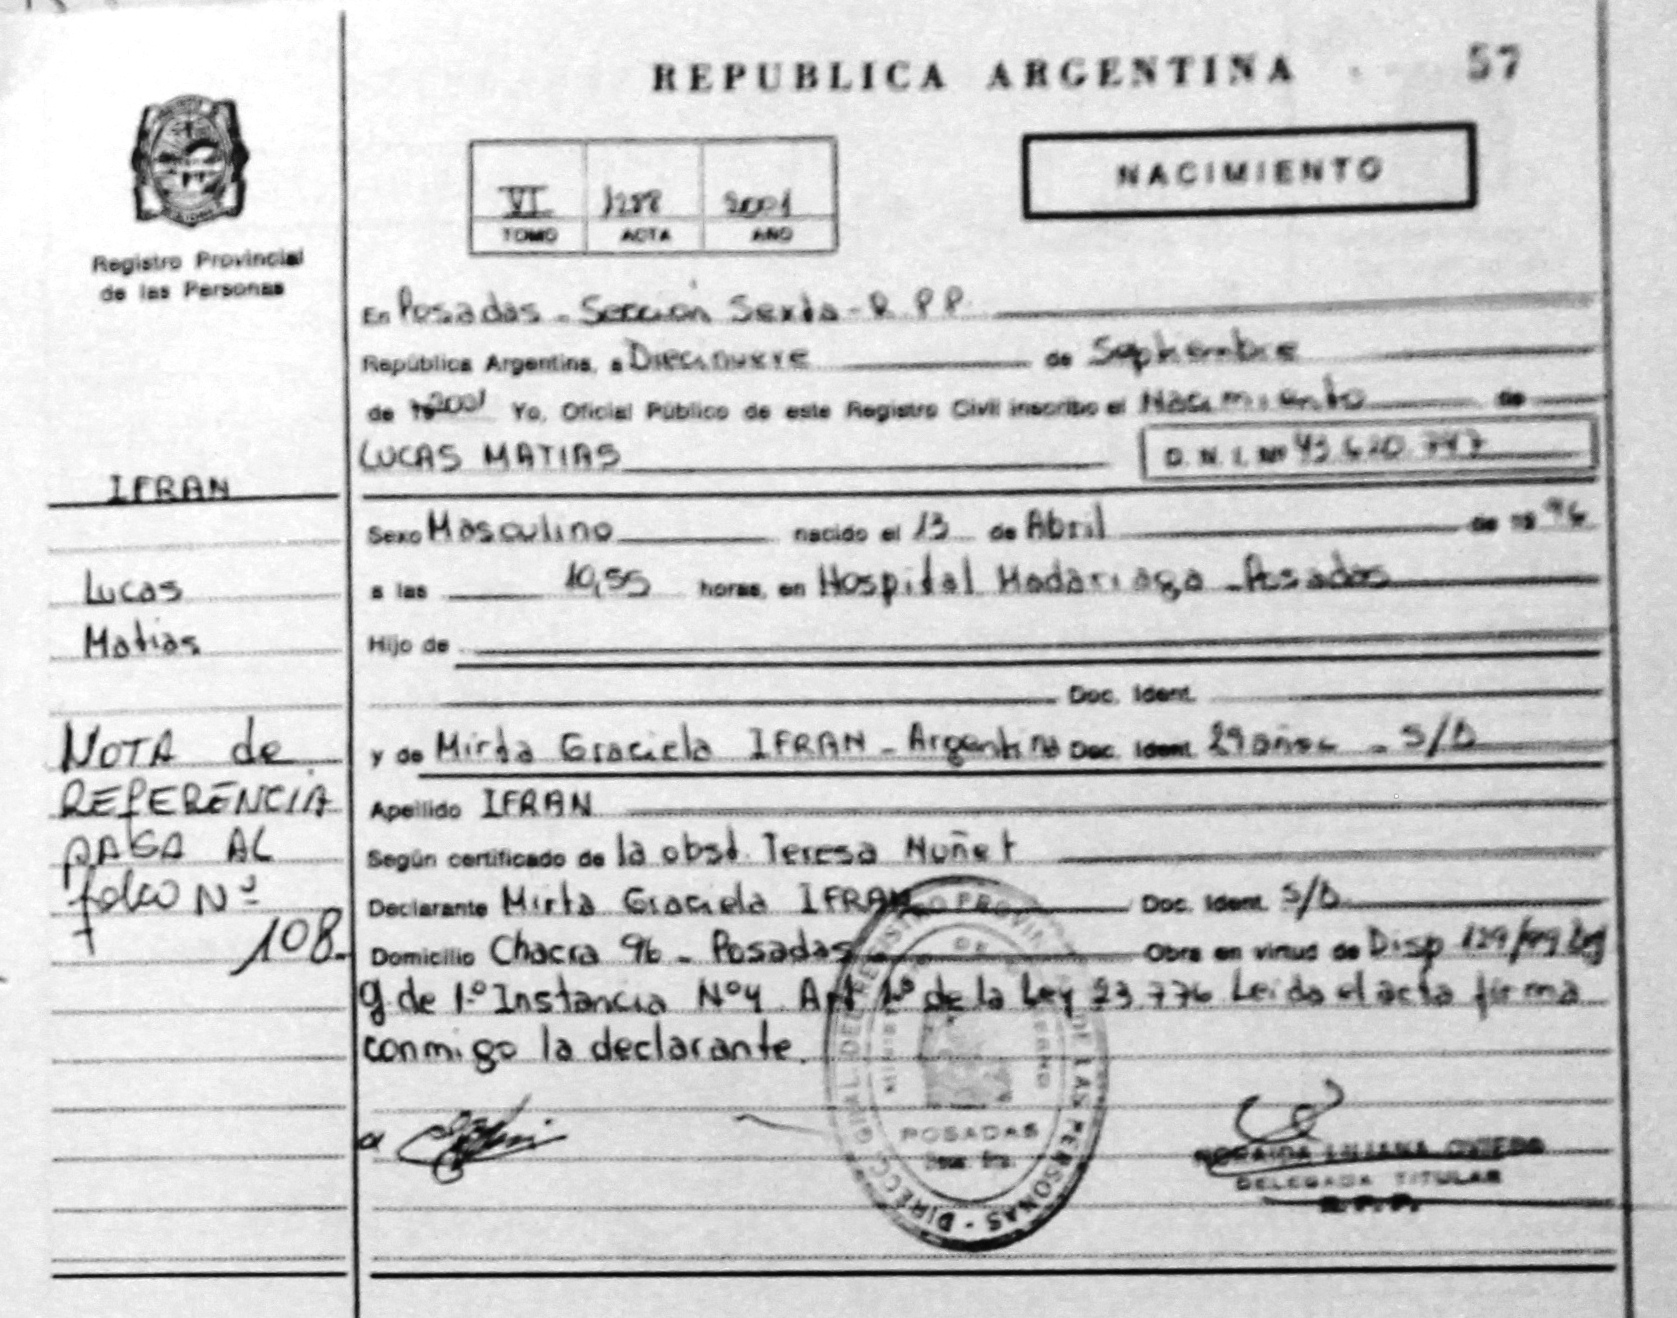 REPUBLICA ARGENTINA 57
NACIMIENTO
VI 1288 2001
TOMO ACTA AÑO
Registro Provincial
de las Personas
En Posadas - Sección Sexta - R.P.P.
República Argentina, a Diecinueve de Septiembre
de 19 2001 Yo, Oficial Público de este Registro Civil inscribo el Nacimiento de
LUCAS MATIAS D.N.I. Nº 43.620.747
IFRAN
Sexo Masculino nacido el 13 de Abril de 19 96
Lucas
a las 10,55 horas, en Hospital Madariaga - Posadas
Matias
Hijo de
Doc. Ident.
NOTA de
y de Mirta Graciela IFRAN - Argentina Doc. Ident. 29 años - S/D
REFERENCIA
Apellido IFRAN
PASA AL
Según certificado de la obst. Teresa Nuñez
folio Nº
Declarante Mirta Graciela IFRAN Doc. Ident. S/D
108.
Domicilio Chacra 96 - Posadas Obra en virtud de Disp 129/99
de 1º Instancia Nº4 Art 1º de la Ley 23.776 Leida el acta firma
conmigo la declarante.
DIRECC. GRAL. DEL REGISTRO PROVINCIAL DE LAS PERSONAS
POSADAS
LILIANA OVIEDO
DELEGADA TITULAR
R.P.P.